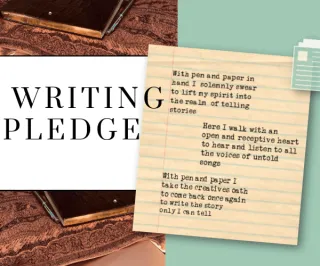 WRITING
PLEDGE
With pen and paper in
hand I solemnly swear
to lift my spirit into
the realm of telling
stories
Here I walk with an
open and receptive heart
to hear and listen to all
the voices of untold
songs
With pen and paper I
take the creatives oath
to come back once again
to write the story
only I can tell